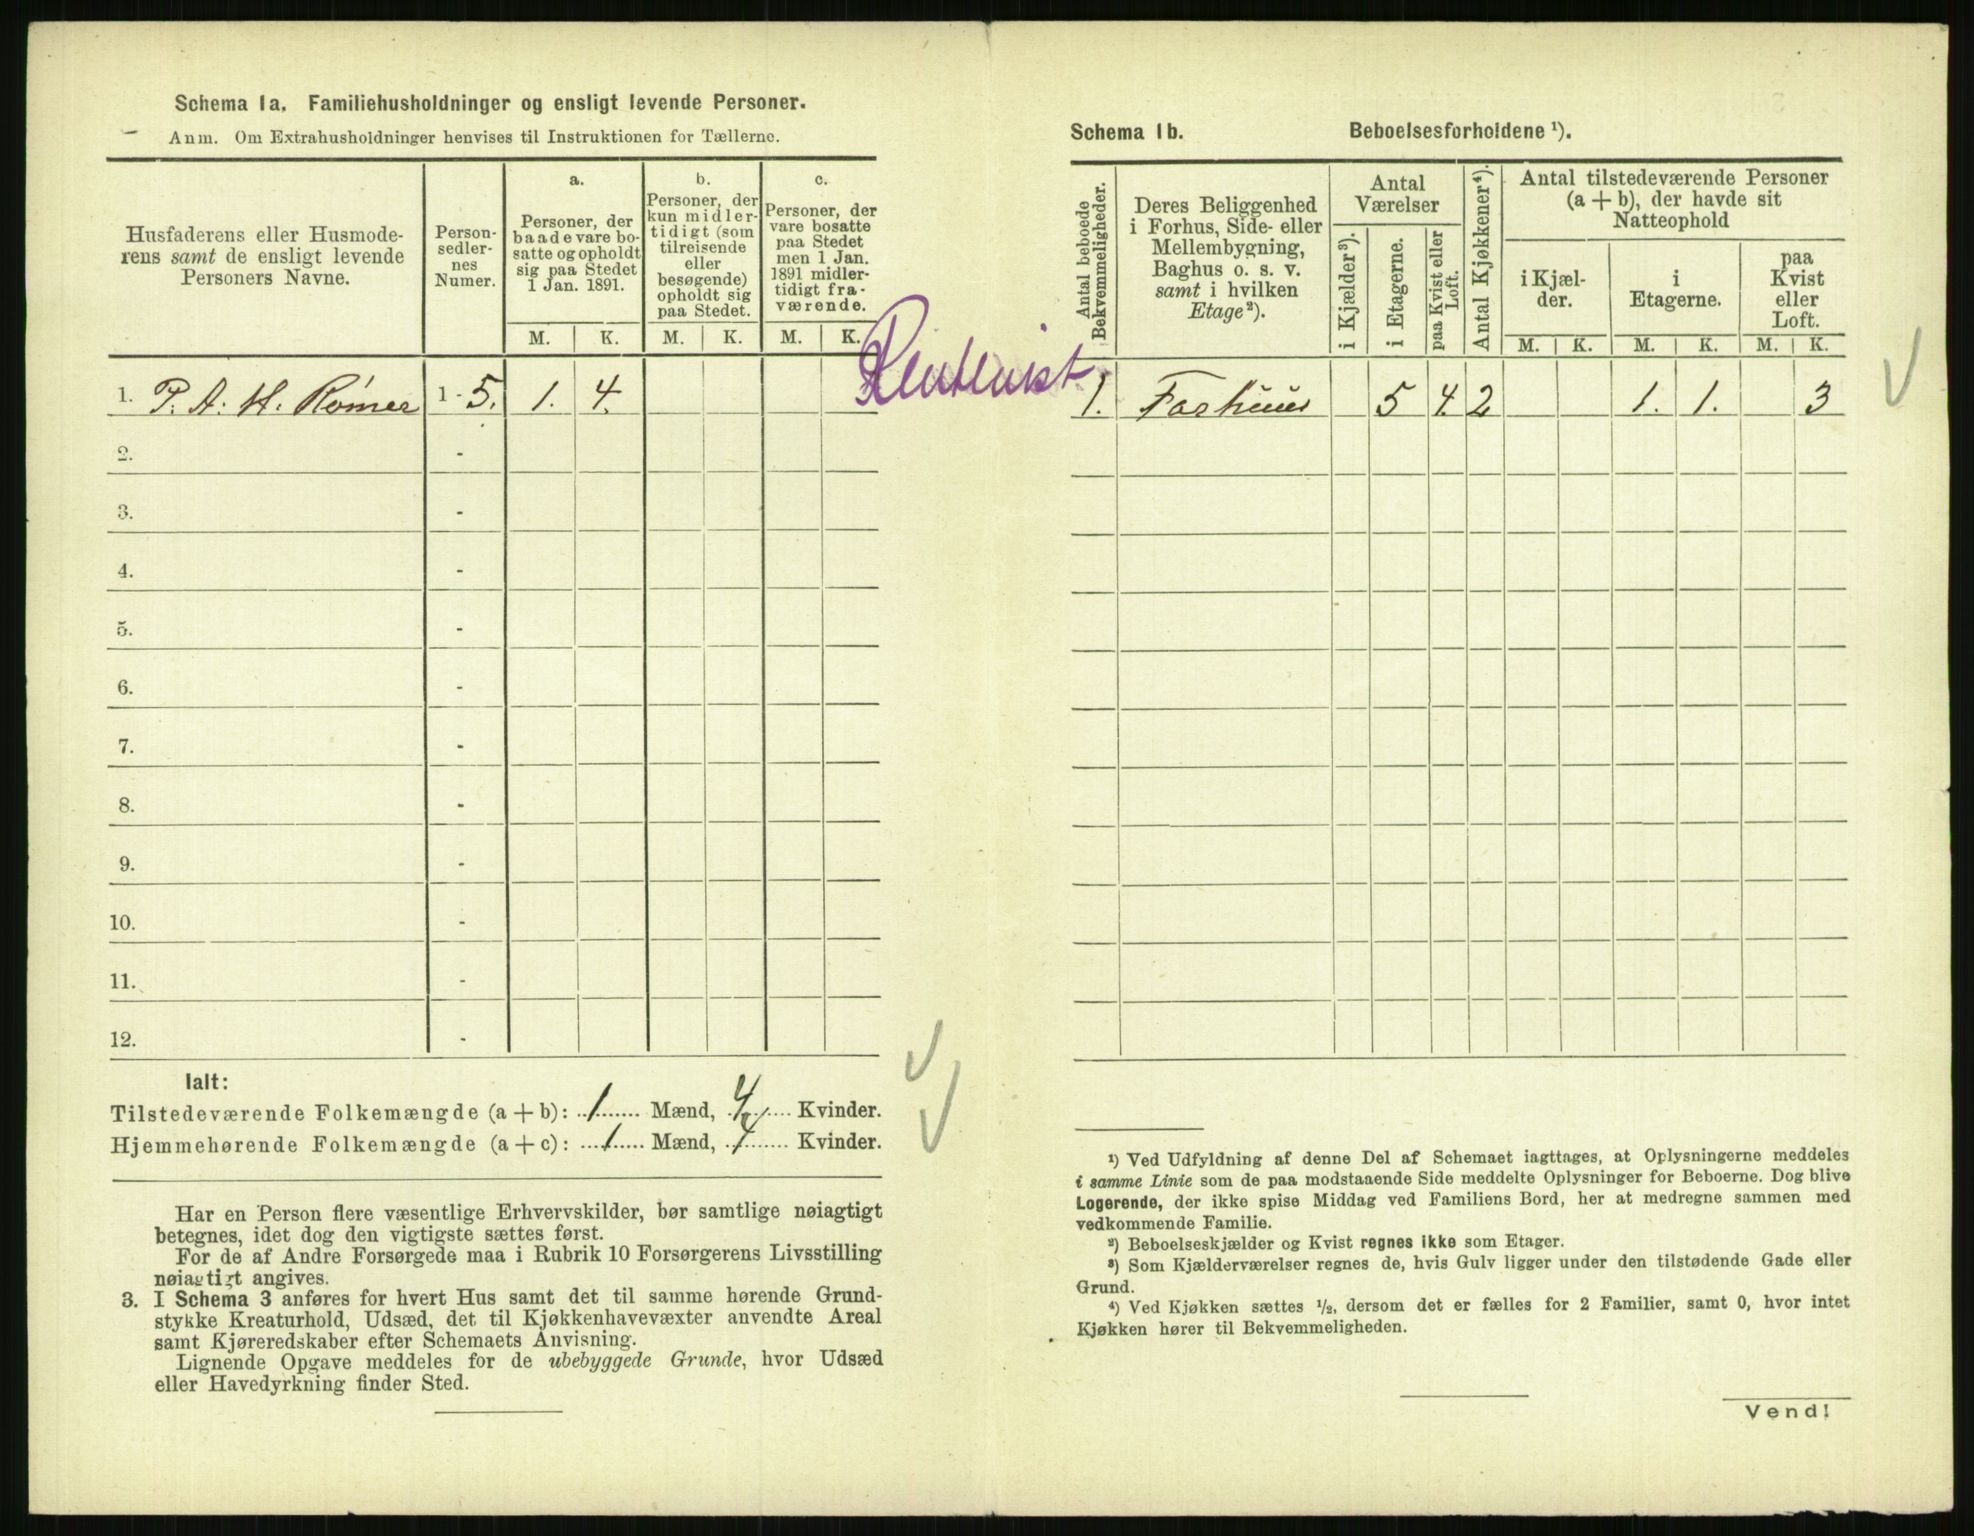 Schema 1a. Familiehusholdninger og ensligt levende Personer.
Anm. Om Extrahusholdninger henvises til Instruktionen for Tællerne.
Husfaderens eller Husmode-
rens samt de ensligt levende
Personers Navne.
Person-
sedler-
nes
Numer.
a.
Personer, der
baade vare bo-
satte og opholdt
sig paa Stedet
1 Jan. 1891.
b.
Personer, der
kun midler-
tidigt (som
tilreisende
eller
besøgende)
opholdt sig
paa Stedet.
c.
Personer, der
vare bosatte
paa Stedet
men 1 Jan.
1891 midler-
tidigt fra-
værende.
M. K. M. K. M. K.
1. P. A. H. Römer 1 - 5. 1. 4.
Rentenist
2. -
3. -
4. -
5. -
6. -
7. -
8. -
9. -
10. -
11. -
12. -
Ialt:
Tilstedeværende Folkemængde (a + b): 1 Mænd, 4 Kvinder.
Hjemmehørende Folkemængde (a + c): 1 Mænd, 4 Kvinder.
Har en Person flere væsentlige Erhvervskilder, bør samtlige nøiagtigt
betegnes, idet dog den vigtigste sættes først.
For de af Andre Forsørgede maa i Rubrik 10 Forsørgerens Livsstilling
nøiagtigt angives.
3. I Schema 3 anføres for hvert Hus samt det til samme hørende Grund-
stykke Kreaturhold, Udsæd, det til Kjøkkenhavevæxter anvendte Areal
samt Kjøreredskaber efter Schemaets Anvisning.
Lignende Opgave meddeles for de ubebyggede Grunde, hvor Udsæd
eller Havedyrkning finder Sted.
Schema 1b. Beboelsesforholdene ¹).
Antal beboede
Bekvemmeligheder.
Deres Beliggenhed
i Forhus, Side- eller
Mellembygning,
Baghus o. s. v.
samt i hvilken
Etage²).
Antal
Værelser
i Kjælder³).
i Etagerne.
paa Kvist eller
Loft.
Antal Kjøkkener⁴).
Antal tilstedeværende Personer
(a + b), der havde sit
Natteophold
i Kjæl-
der.
i
Etagerne.
paa
Kvist
eller
Loft.
M. K. M. K. M. K.
1. Forhuus 5 4. 2 1. 1. 3
¹) Ved Udfyldning af denne Del af Schemaet iagttages, at Oplysningerne meddeles
i samme Linie som de paa modstaaende Side meddelte Oplysninger for Beboerne. Dog blive
Logerende, der ikke spise Middag ved Familiens Bord, her at medregne sammen med
vedkommende Familie.
²) Beboelseskjælder og Kvist regnes ikke som Etager.
³) Som Kjælderværelser regnes de, hvis Gulv ligger under den tilstødende Gade eller
Grund.
⁴) Ved Kjøkken sættes ½, dersom det er fælles for 2 Familier, samt 0, hvor intet
Kjøkken hører til Bekvemmeligheden.
Vend!